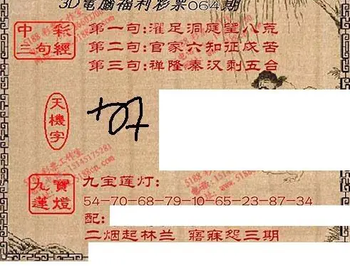 3D電腦福利彩票064期
中彩
三句經
第一句：濯足洞庭望八荒
第二句：官家六知证成苦
第三句：禅隆秦汉剩五台
天機字
九寶
蓮燈
九宝莲灯：
54-70-68-79-10-65-23-87-34
配：
二烟起林兰 寤寐怨三期